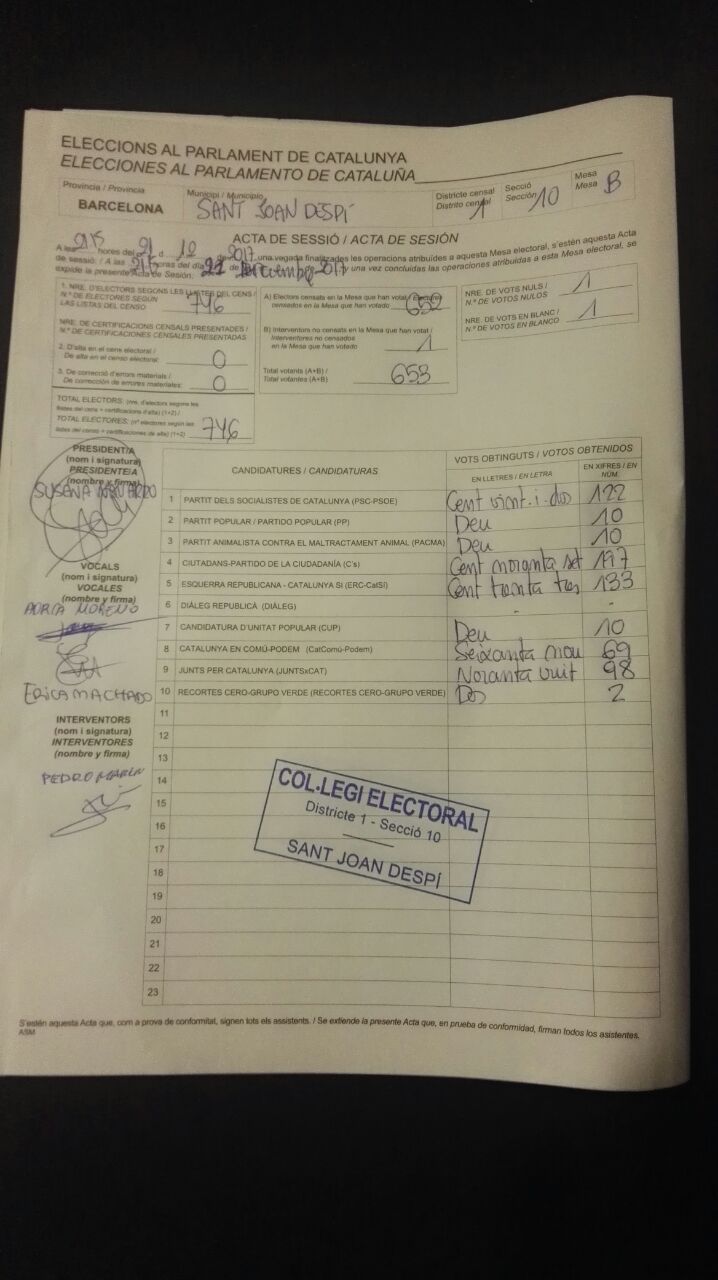 ELECCIONS AL PARLAMENT DE CATALUNYA
ELECCIONES AL PARLAMENTO DE CATALUÑA
Provincia / Provincia
BARCELONA
Municipi / Municipio
SANT JOAN DESPÍ
Districte censal
Distrito censal
1
Secció
Sección
10
Mesa
Mesa
B
ACTA DE SESSIÓ / ACTA DE SESIÓN
A les 2115 hores del 21 d 12 de 2017, una vegada finalitzades les operacions atribuïdes a aquesta Mesa electoral, s'estén aquesta Acta
de sessió. / A las 2115 horas del día 21 de Decembre 2017 una vez concluidas las operaciones atribuidas a esta Mesa electoral, se
expide la presente Acta de Sesión.
1. NRE. D'ELECTORS SEGONS LES LLISTES DEL CENS /
N.º DE ELECTORES SEGÚN
LAS LISTAS DEL CENSO
746
NRE. DE CERTIFICACIONS CENSALS PRESENTADES /
N.º DE CERTIFICACIONES CENSALES PRESENTADAS
2. D'alta en el cens electoral /
De alta en el censo electoral:
0
3. De correcció d'errors materials /
De corrección de errores materiales:
0
TOTAL ELECTORS: (nre. d'electors segons les
llistes del cens + certificacions d'alta) (1+2) /
TOTAL ELECTORES: (nº electores según las
listas del censo + certificaciones de alta) (1+2)
746
A) Electors censats en la Mesa que han votat / Electores
censados en la Mesa que han votado
652
B) Interventors no censats en la Mesa que han votat /
Interventores no censados
en la Mesa que han votado
1
Total votants (A+B) /
Total votantes (A+B)
653
NRE. DE VOTS NULS /
N.º DE VOTOS NULOS
1
NRE. DE VOTS EN BLANC /
N.º DE VOTOS EN BLANCO
1
PRESIDENT/A
(nom i signatura)
PRESIDENTE/A
(nombre y firma)
SUSANA
VOCALS
(nom i signatura)
VOCALES
(nombre y firma)
ADRIA MORENO
ERICA MACHADO
INTERVENTORS
(nom i signatura)
INTERVENTORES
(nombre y firma)
PEDRO MARIN
CANDIDATURES / CANDIDATURAS
VOTS OBTINGUTS / VOTOS OBTENIDOS
EN LLETRES / EN LETRA
EN XIFRES / EN NÚM.
1 PARTIT DELS SOCIALISTES DE CATALUNYA (PSC-PSOE) Cent vint-i-dos 122
2 PARTIT POPULAR / PARTIDO POPULAR (PP) Deu 10
3 PARTIT ANIMALISTA CONTRA EL MALTRACTAMENT ANIMAL (PACMA) Deu 10
4 CIUTADANS-PARTIDO DE LA CIUDADANÍA (C's) Cent noranta set 197
5 ESQUERRA REPUBLICANA - CATALUNYA SÍ (ERC-CatSí) Cent trenta tres 133
6 DIÀLEG REPUBLICÀ (DIÀLEG) - -
7 CANDIDATURA D'UNITAT POPULAR (CUP) Deu 10
8 CATALUNYA EN COMÚ-PODEM (CatComú-Podem) Seixanta nou 69
9 JUNTS PER CATALUNYA (JUNTSxCAT) Noranta vuit 98
10 RECORTES CERO-GRUPO VERDE (RECORTES CERO-GRUPO VERDE) Dos 2
11
12
13
14
15
16
17
18
19
20
21
22
23
COL·LEGI ELECTORAL
Districte 1 - Secció 10
SANT JOAN DESPÍ
S'estén aquesta Acta que, com a prova de conformitat, signen tots els assistents. / Se extiende la presente Acta que, en prueba de conformidad, firman todos los asistentes.
ASM